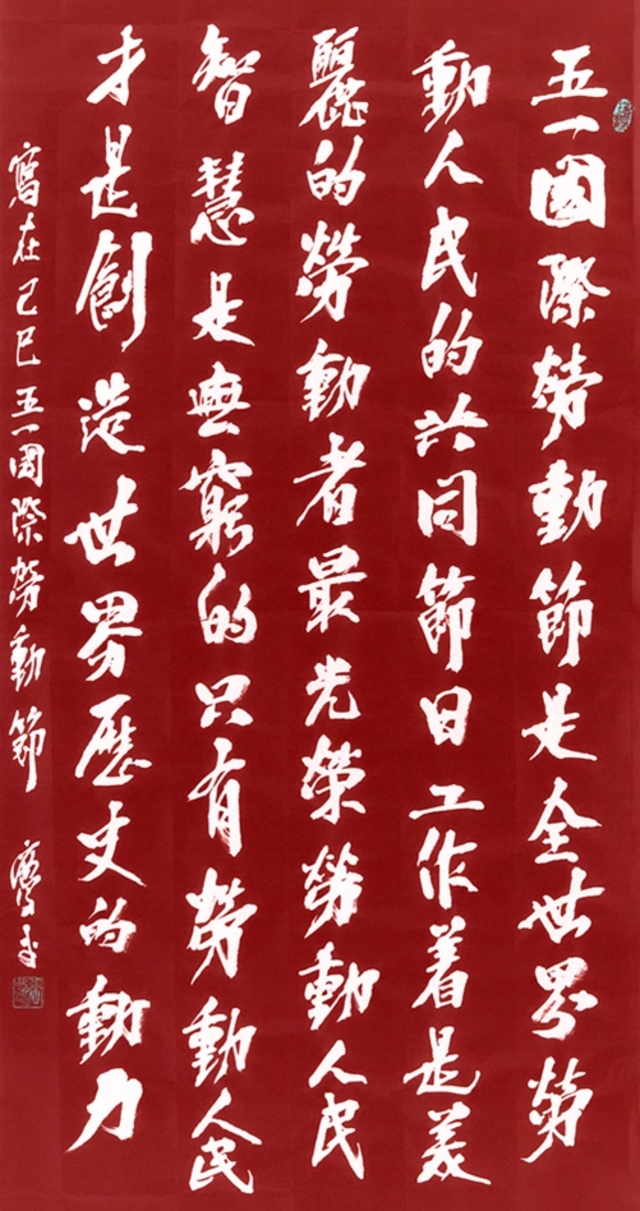 五一國際勞動節是全世界勞
動人民的共同節日工作着是美
麗的勞動者最光榮勞動人民
智慧是無窮的只有勞動人民
才是創造世界歷史的動力
寫在己巳五一國際勞動節